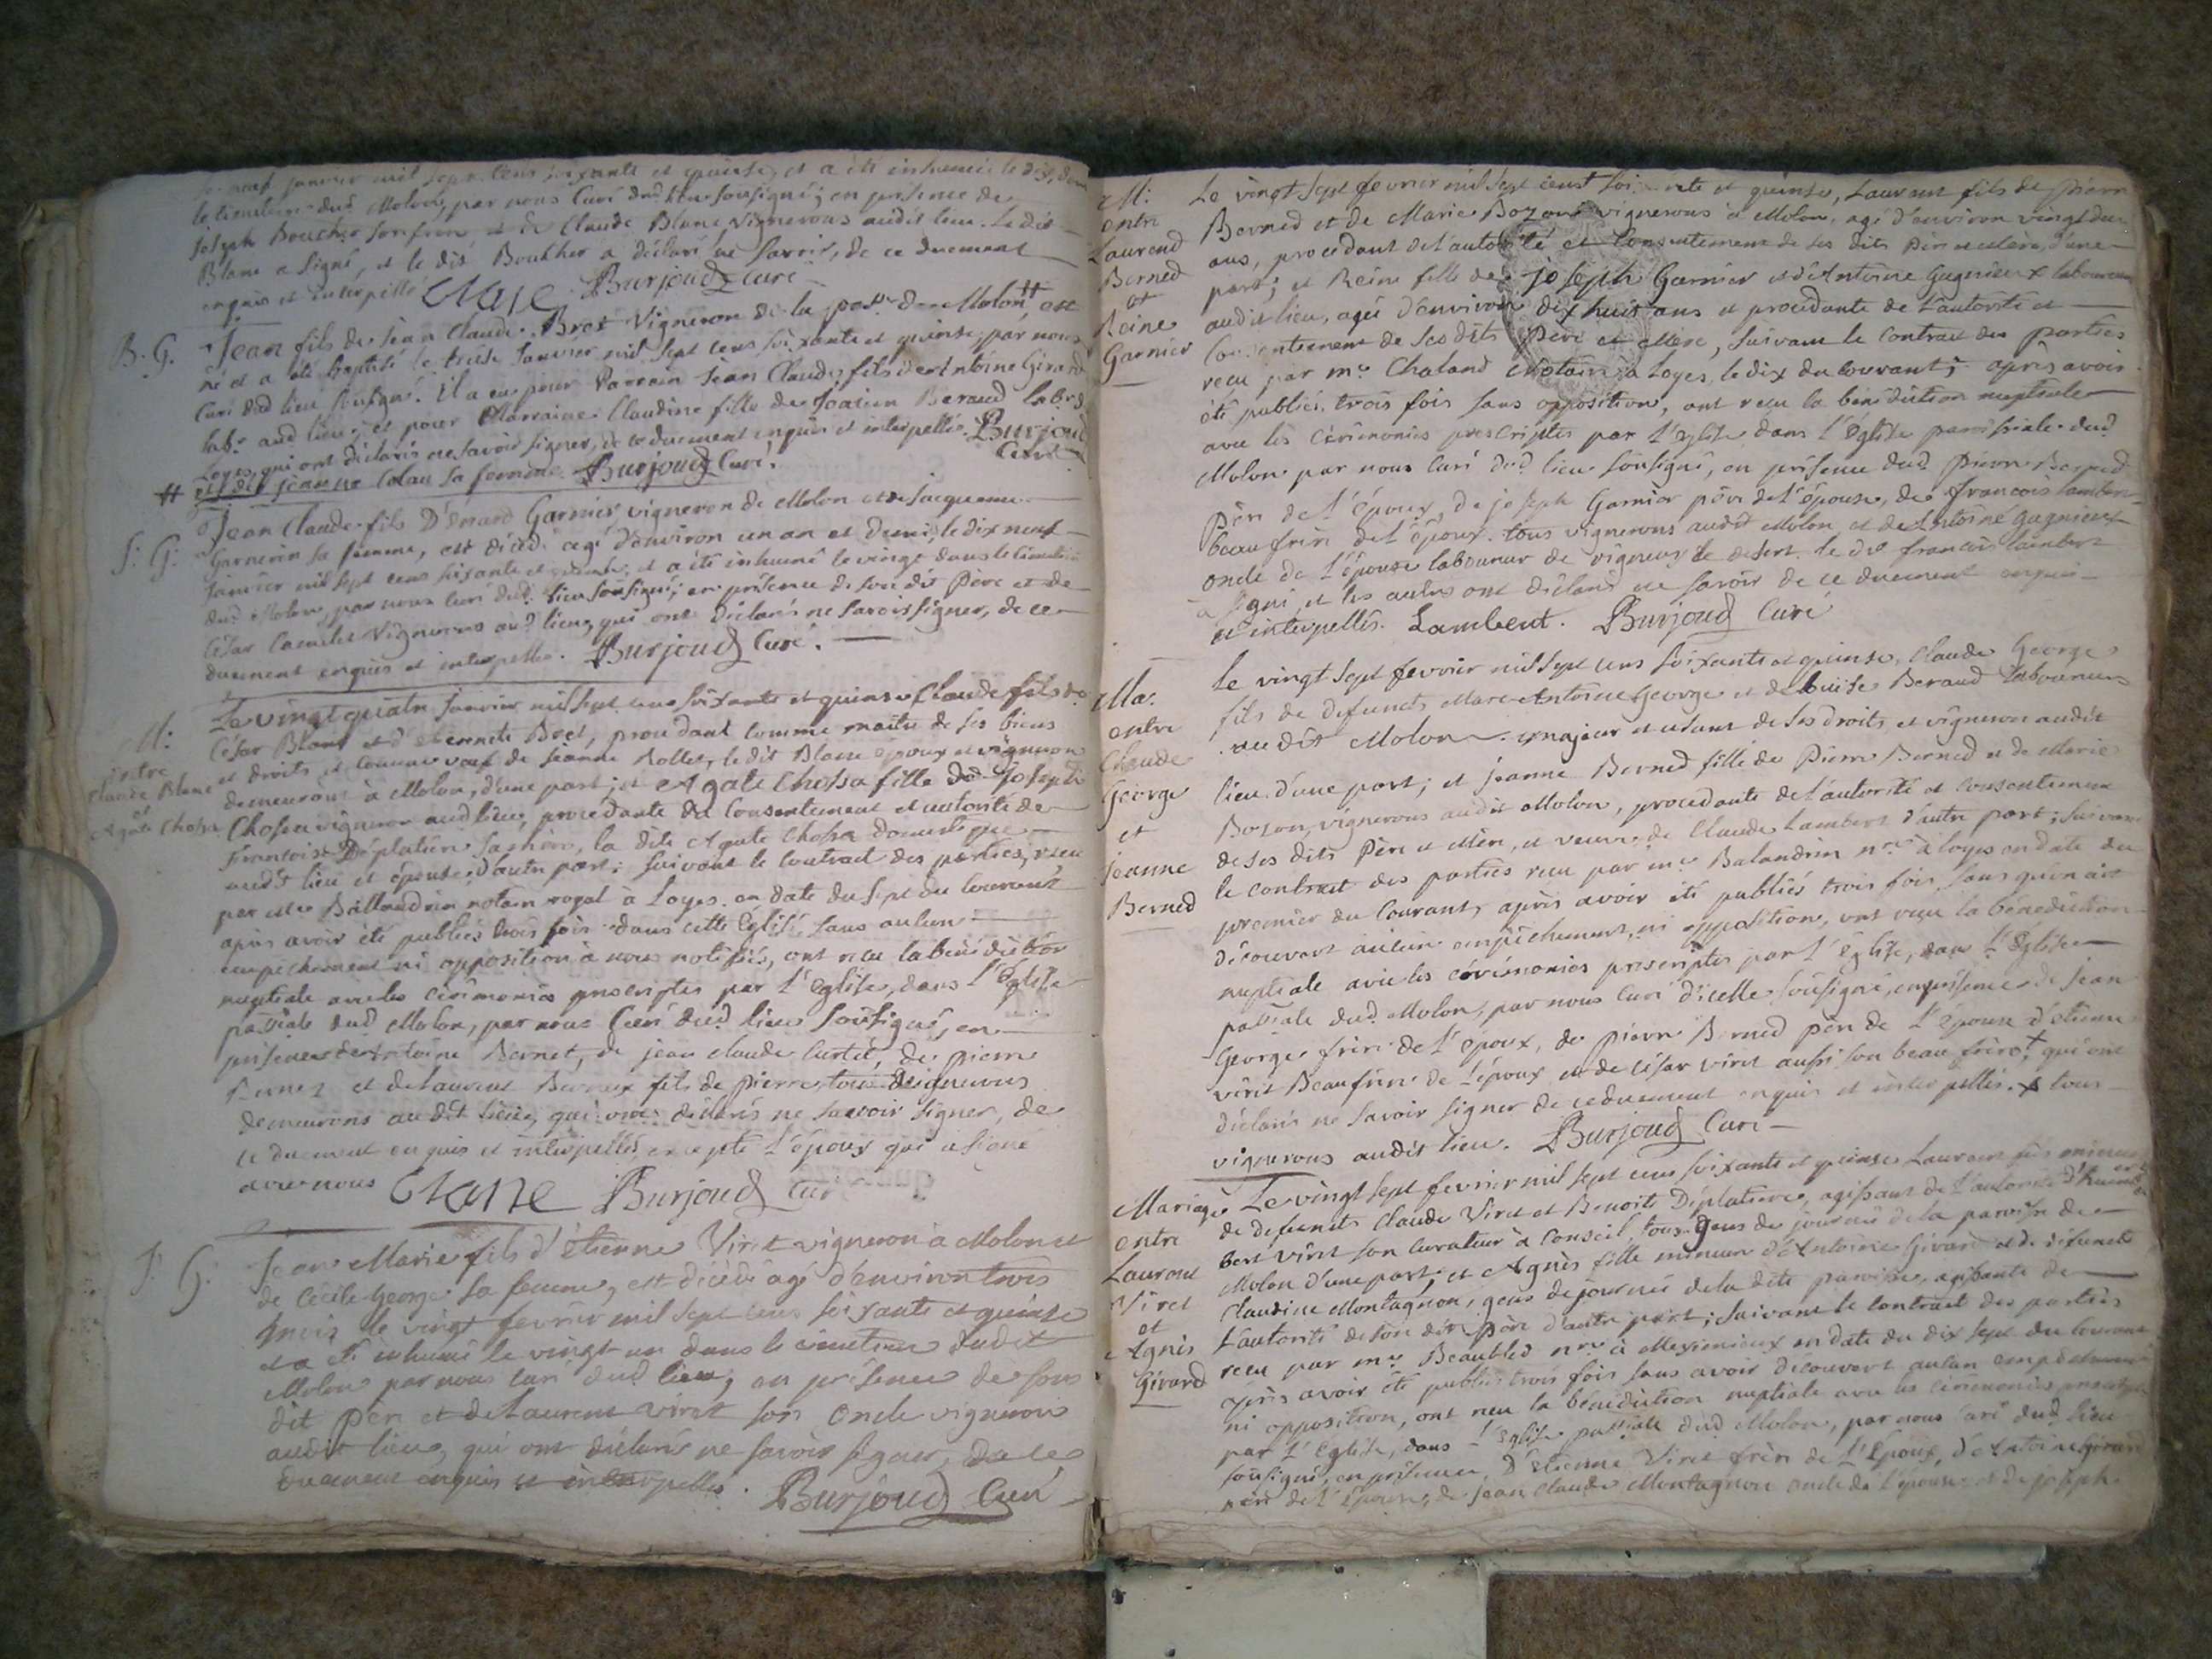 le neuf janvier mil sept cens soixante et quinse, et a été inhumé le dix, dans
le cimetiere dud Molon, par nous Curé dud lieu soussigné; en présence de
Joseph Boucher son frere et de Claude Blanc vignerons audit lieu. Le dit
Blanc a signé, et le dit Boucher a déclaré ne savoir, de ce duement
enquis et interpellé Blanc Burjoud Curé
B. G. Jean fils de Jean Claude Bret vigneron de la par. de Molon # est
né et a été baptisé le treise Janvier mil sept cens soixante et quinse, par nous
Curé dud lieu soussigné. Il a eu pour Parrain Jean Claude fils d'Antoine Girard
labr. aud lieu; et pour Marraine Claudine fille de Beraud labr. d
Loyes, qui ont déclarés ne savoir signer, de ce duement enquis et interpellés. Burjoud
Curé
# et de Jeanne Colau sa femme. Burjoud Curé.
S. G. Jean Claude fils D' Garnier vigneron de Molon et de Jacqueme
Garnerin sa femme, est décédé agé d'environ un an et demi, le dix neuf
Janvier mil sept cens soixante et quinse, et a été inhumé le vingt dans le Cimetiere
dud Molon, par nous Curé dud. lieu soussigné; en présence de son dit Père et de
César vignerons aud lieu, qui ont déclarés ne savoir signer, de ce
duement enquis et interpellés. Burjoud Curé.
M:
entre
Claude Blanc
et
Agate Chossa
Le vingt quatre Janvier mil sept cens soixante et quinse Claude fils de
César Blanc et d' Bret, procédant comme maitre de ses biens
et droits, et comme veuf de Jeanne Rollet, le dit Blanc époux et vigneron
demeurant à Molon, d'une part; et Agate Chossa fille de Joseph
Chossa vigneron aud lieu, procédante du Consentement et autorité de
Francoise Déplatière sa mère, la dite Agate Chossa domestique
audit lieu et épouse, d'autre part; suivant le contrat des parties, recu
par Me Ballandrin notaire royal à Loyes en date du sept du Courant
après avoir été publiés trois fois dans cette Eglise sans aucun
empechement ni opposition à nous notifiés, ont recu la bénédiction
nuptiale avec les cérémonies prescriptes par l'Eglise, dans l'Eglise
paroissiale dud Molon, par nous Curé dud lieu soussigné, en
présence d'Antoine Bernet, de jean claude Curtet, de pierre
et de Laurent fils de pierre tous vignerons
demeurans au dit lieu, qui ont déclarés ne savoir signer, de
ce duement enquis et interpellés, excepté l'époux qui a signé
avec nous Blanc Burjoud Curé
S. G. Jean Marie fils d'étienne Viret vigneron à Molon et
de Cécile George sa femme, est décédé agé d'environ trois
mois le vingt fevrier mil sept cens soixante et quinse
et a été inhumé le vingt un dans le cimetiere dudit
Molon par nous Curé dud lieu, en présence de son
dit père et de Laurent viret son oncle vignerons
audit lieu, qui ont déclarés ne savoir signer, de ce
duement enquis et interpellés. Burjoud Curé
M:
entre
Laurend
Berned
et
Reine
Garnier
Le vingt sept fevrier mil sept censt soixante et quinse, Laurent fils de pierre
Berned et de Marie Bozon vignerons à Molon, agé d'environ vingt deux
ans, procedant de l'autorité et Consentement de ses dits père et mère, d'une
part; et Reine fille de joseph Garnier et d'Antoine Gagnieux laboureur
audit lieu, agée d'environ dix huit ans et procedante de l'autorité et
Consentement de ses dits Père et Mère, suivant le contrat des parties
recu par me Chaland Notaire à Loyes, le dix du courant; après avoir
été publiés trois fois sans opposition, ont recu la bénédiction nuptiale
avec les cérémonies prescriptes par l'Eglise dans l'Eglise paroissiale dud
Molon par nous Curé dud lieu soussigné, en présence dud pierre Berned
père de l'époux, de joseph Garnier père de l'épouse, de francois lambert
beau frère de l'époux tous vignerons audit Molon et d'Antoine Gagnieux
oncle de l'épouse laboureur de vigneux le desert. le dit francois lambert
a signé, et les autres ont déclaré ne savoir de ce duement enquis
et interpellés. Lambert. Burjoud Curé
Ma:
entre
Claude
George
et
jeanne
Berned
Le vingt sept fevrier mil sept cens soixante et quinse, Claude George
fils de defuncts Marc Antoine George et de Louise Beraud laboureurs
audit Molon, majeur et usant de ses droits et vigneron audit
lieu d'une part; et jeanne Berned fille de Pierre Berned et de Marie
Bozon, vignerons audit Molon, procedante de l'autorité et consentement
de ses dits Père et Mère, et veuve de Claude Lambert d'autre part; suivant
le contract des parties recu par me Balandrin nre à loyes en date du
premier du Courant, après avoir été publiés trois fois, sans qu'on ait
découvert aucun empêchement, ni opposition, ont recu la bénediction
nuptiale avec les cérémonies prescriptes par l'Eglise, dans l'Eglise
paroissiale dud Molon, par nous Curé d'icelle soussigné, en présence de Jean
George frère de l'époux, de pierre Berned père de l'épouse d'étienne
viret Beaufrère de l'époux et de César viret aussi son beau frère, x qui ont
déclarés ne savoir signer de ce duement enquis et interpellés. x tous
vignerons audit lieu. Burjoud Curé
Mariage
entre
Laurent
Viret
et
Agnès
Girard
Le vingt sept fevrier mil sept cens soixante et quinse Laurent fils mineur
de defuncts Claude Viret et Benoite Déplatiere, agissant de l'autorité d'
bert viret son Curateur à Conseil, tous gens de journée de la paroisse de
Molon d'une part; et Agnès fille mineure d'Antoine Girard et de defuncte
Claudine Montagnon, gens de journée de la dite paroisse, agissante de
L'autorité de son dit père d'autre part; suivant le Contract des parties
recu par me Beaubled nre à Meximieux en date du dix sept du Courant
après avoir été publiés trois fois sans avoir découvert aucun empêchement
ni opposition, ont recu la bénédiction nuptiale avec les cérémonies prescriptes
par l'Eglise, dans l'Eglise paroissiale dud Molon, par nous Curé dud lieu
soussigné, en présence, d'étienne Viret frère de l'Epoux, d'Antoine Girard
père de l'Epouse, de Jean Claude Montagnon oncle de l'épouse et de joseph